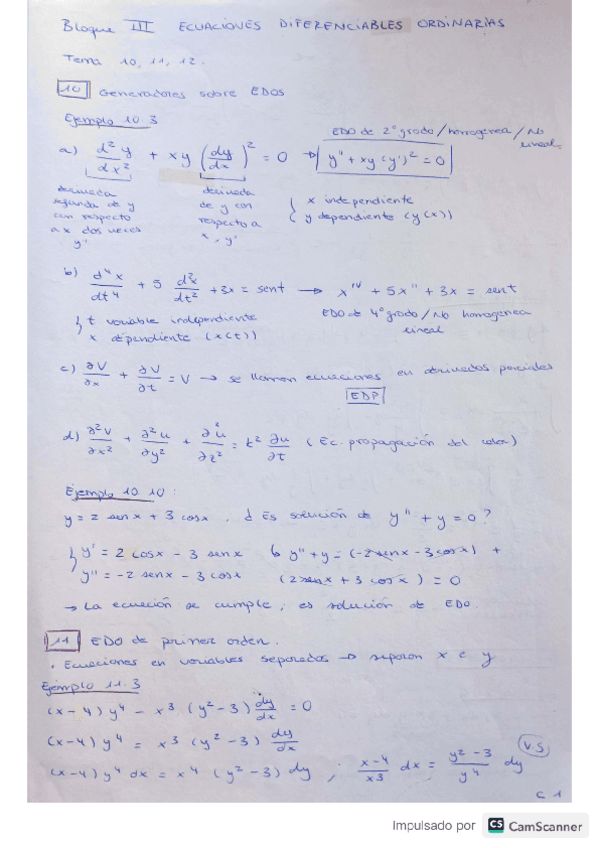 Bloque III ECUACIONES DIFERENCIABLES ORDINARIAS
Tema 10, 11, 12.
10 Generadores sobre EDOS
Ejemplo 10.3
EDO de 2º grado / homogenea / No lineal
a) d²y/dx² + xy (dy/dx)² = 0 → y'' + xy (y')² = 0
derivada segunda de y con respecto a x dos veces y'
derivada de y con respecto a x, y'
{ x independiente
y dependiente (y(x))
b) d⁴x/dt⁴ + 5 d²x/dt² + 3x = sent → x^IV + 5x'' + 3x = sent
{ t variable independiente
x dependiente (x(t))
EDO de 4º grado / No homogenea
lineal
c) ∂V/∂x + ∂V/∂t = V → se llaman ecuaciones en derivadas parciales
EDP
d) ∂²V/∂x² + ∂²u/∂y² + ∂²u/∂z² = k² ∂u/∂t (Ec. propagación del calor)
Ejemplo 10.10:
y = 2 senx + 3 cosx. ¿ Es solución de y'' + y = 0 ?
{ y' = 2 cosx - 3 senx
y'' = -2 senx - 3 cosx
y'' + y = (-2senx - 3cosx) +
(2senx + 3 cosx) = 0
→ La ecuación se cumple, es solución de EDO.
11 EDO de primer orden.
• Ecuaciones en variables separadas → separan x e y
Ejemplo 11.3
(x-4) y⁴ - x³ (y²-3) dy/dx = 0
(x-4) y⁴ = x³ (y²-3) dy/dx
(x-4) y⁴ dx = x⁴ (y²-3) dy ; x-4/x3 dx = y²-3/y⁴ dy (V.S)
C 1
Impulsado por CS CamScanner